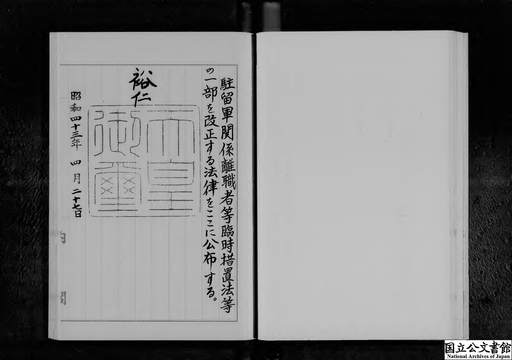 駐留軍関係離職者等臨時措置法等
の一部を改正する法律をここに公布する。
裕仁
天皇
御璽
昭和四十三年四月二十七日
国立公文書館
National Archives of Japan